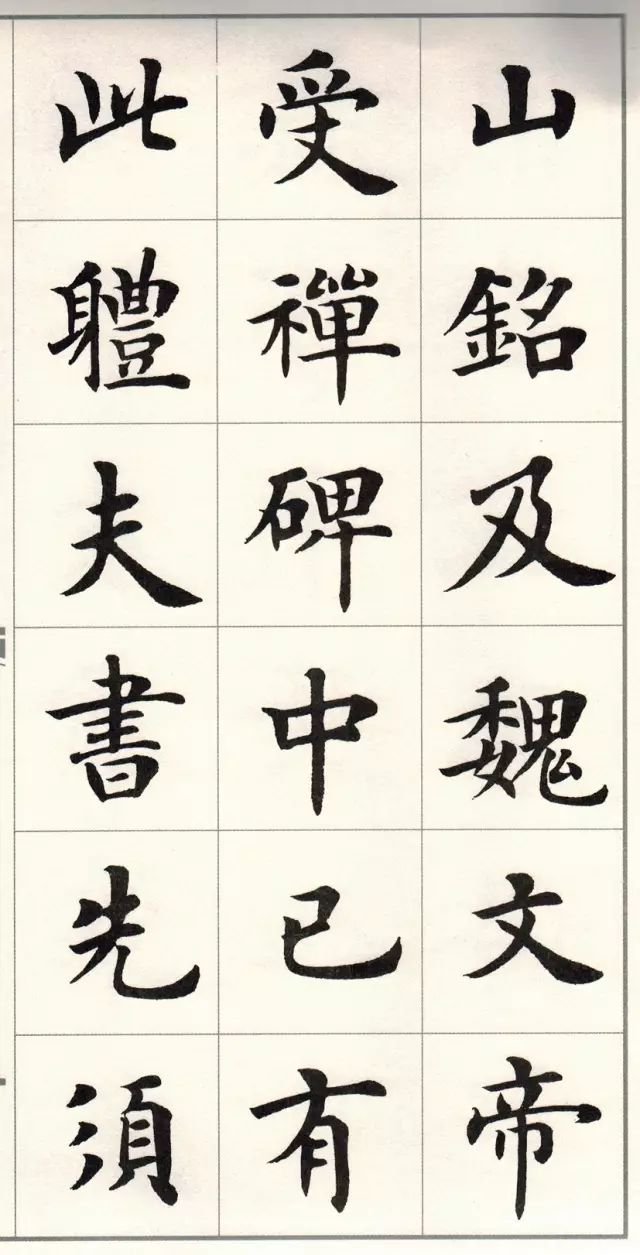 山銘及魏文帝
受禪碑中已有
此軆夫書先須